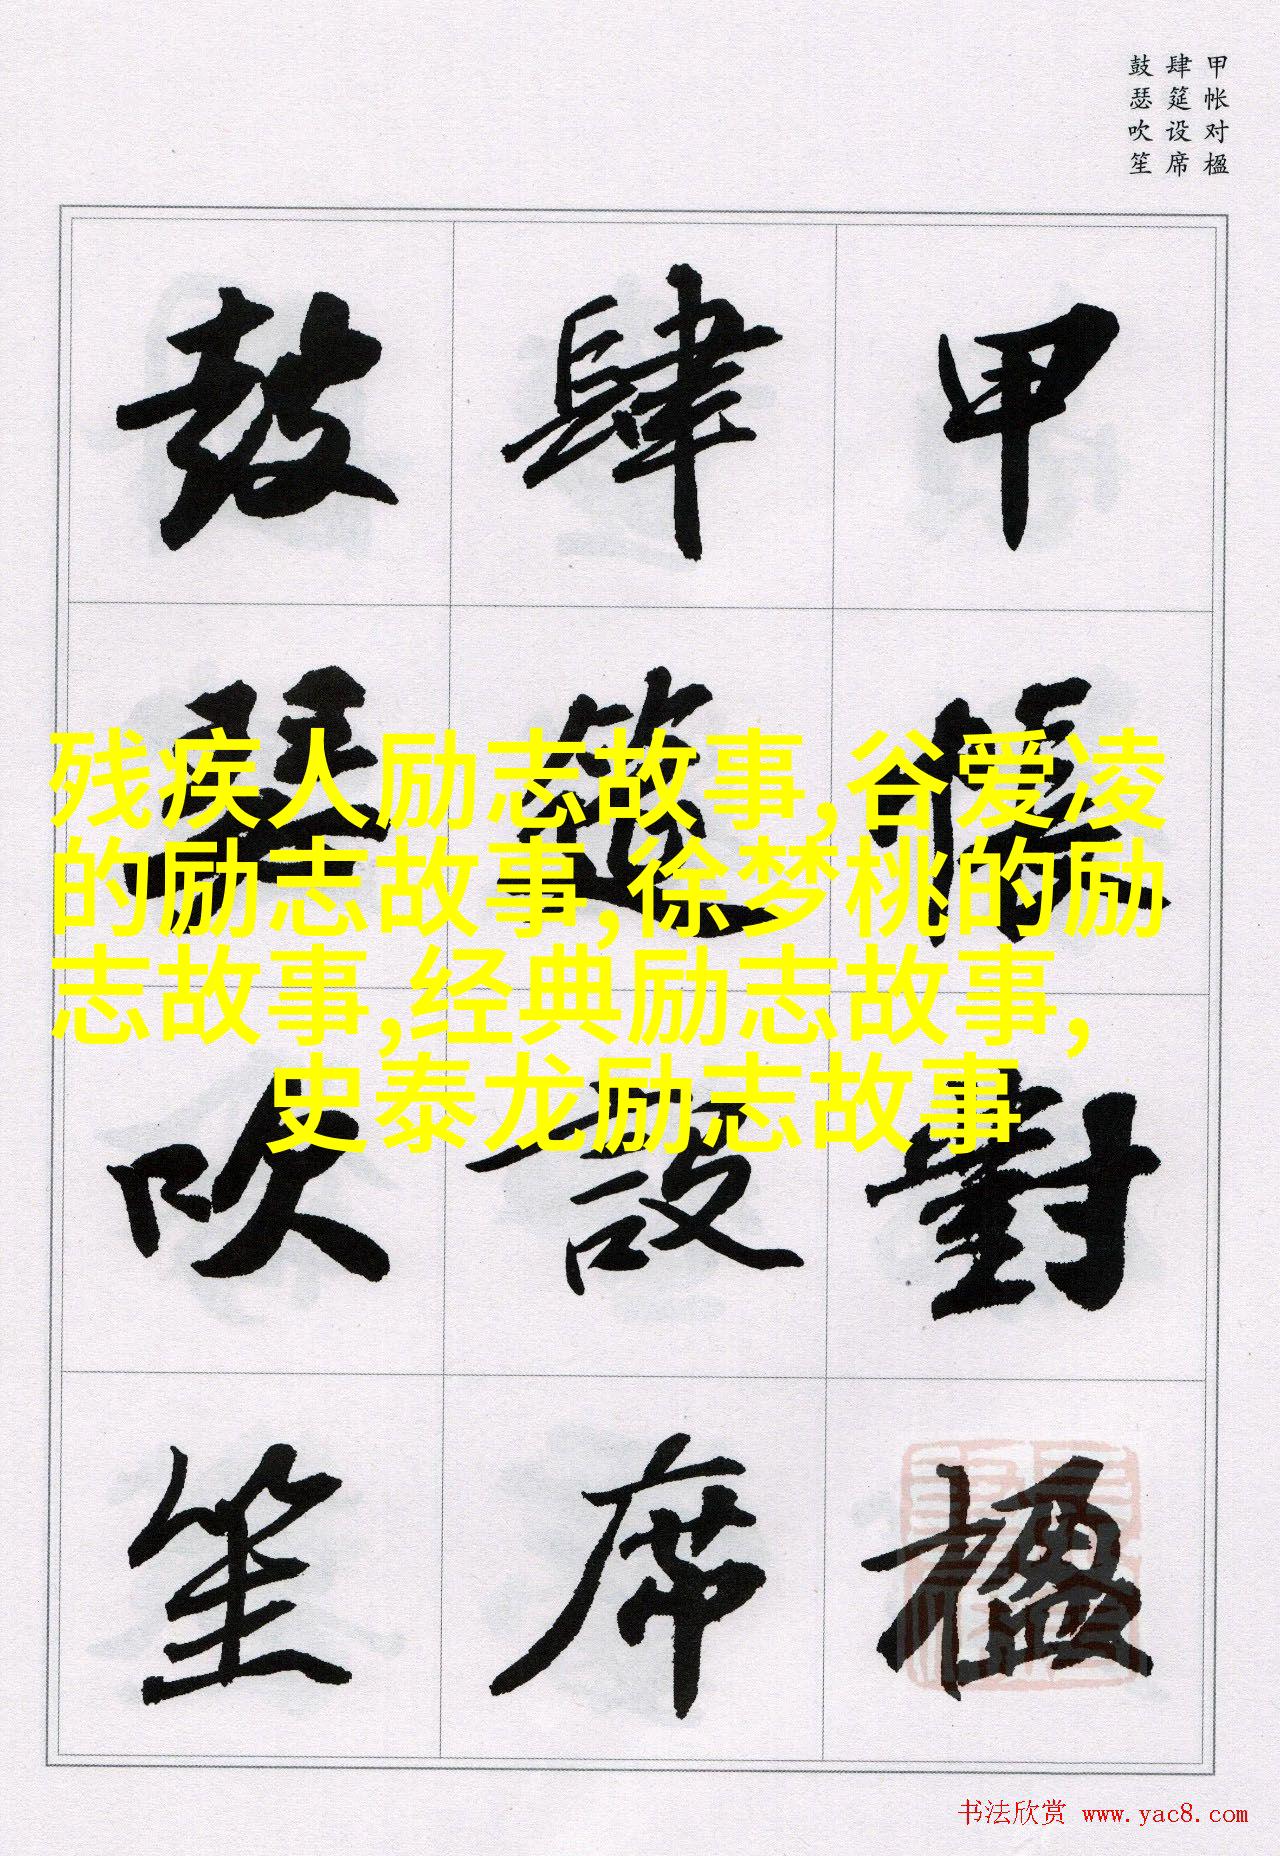 甲帐对楹
肆筵设席
鼓瑟吹笙
甲帳對楹
肆筵設席
鼓瑟吹笙
残疾人励志故事,谷爱凌
的励志故事,徐梦桃的励
志故事,经典励志故事,
史泰龙励志故事
书法欣赏 www.yac8.com